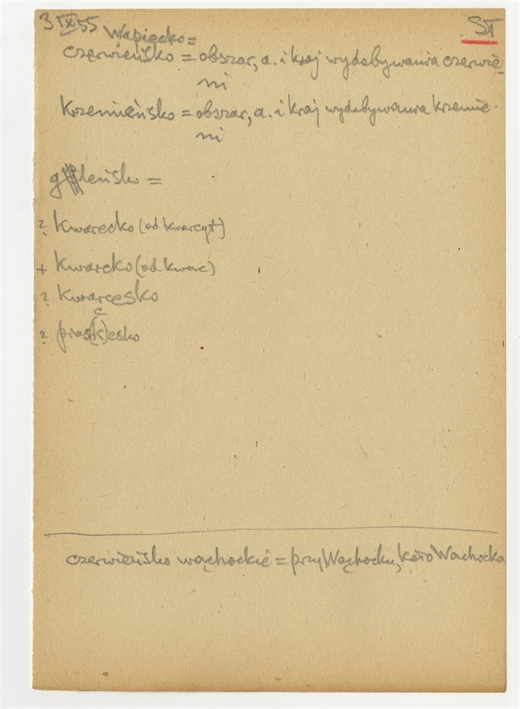 3 IX 55 Wapiecko = ST
czerwieńsko = obszar, a. i kraj wydobywania czerwie-
ni
Krzemieńsko = obszar, a. i kraj wydobywania krzemie-
ni
leńsko =
? Kwarecko (od kwarcyt)
+ Kwarcko (od kwarc)
? Kwarcesko
c
? pias(s)esko
czerwieńsko wąchockie = przy Wąchocku, koło Wąchocka